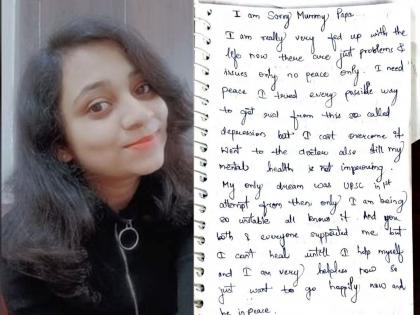 I am Sorry Mummy Papa..
I am really very fed up with the
life now there are just problems &
issues only no peace only. I need
peace I tried every possible way
to get rid from this so called
depression but I can't overcome it
Went to the doctor also still my
mental health is not improving.
My only dream was UPSC in 1st
attempt from then only I am being
so unstable all knows it. And you
both & everyone supported me but
I can't heal untill I help myself
and I am very helpless now so
just want to go happily now and
be in peace.